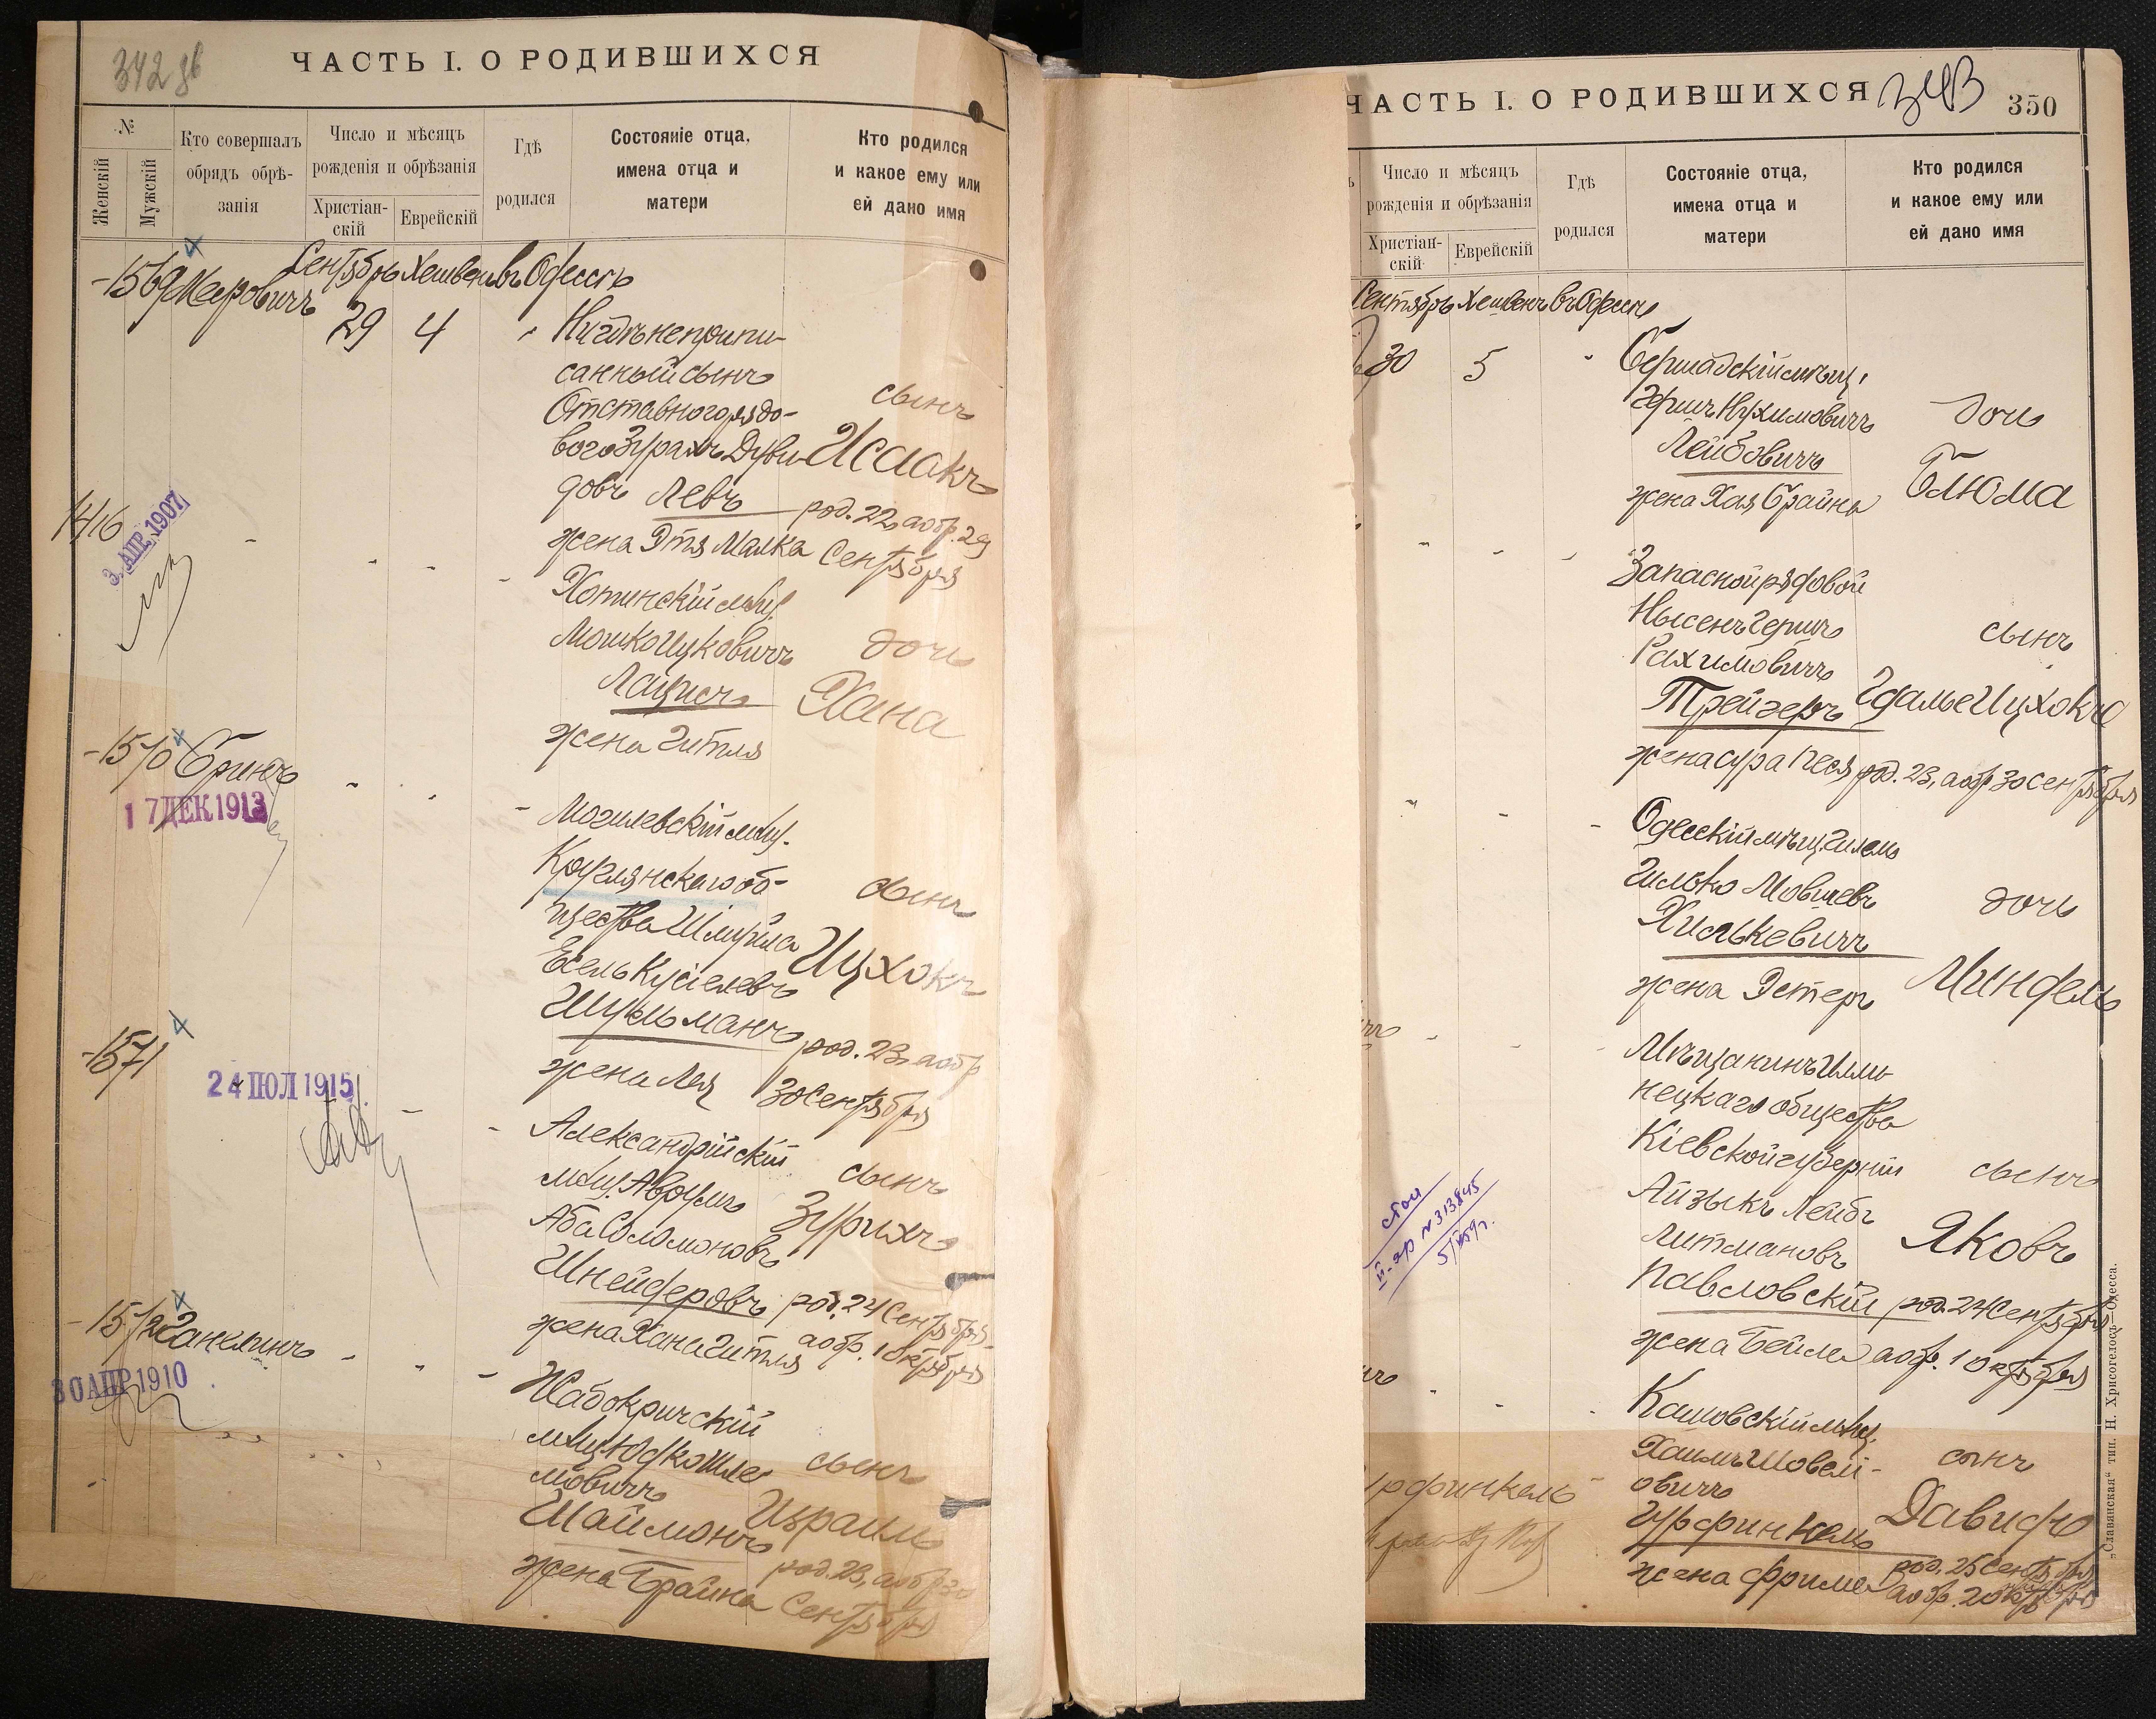 342 дв
ЧАСТЬ I. О РОДИВШИХСЯ
№
Женскій
Мужскій
Кто совершалъ
обрядъ обрѣ-
занія
Число и мѣсяцъ
рожденія и обрѣзанія
Христіан-
скій
Еврейскій
Гдѣ
родился
Состояніе отца,
имена отца и
матери
Кто родился
и какое ему или
ей дано имя
Сентябрь Хешвенъ въ Одессѣ
-1569 Меровичъ
29 4
Нигдѣ неприпи-
санный сынъ
Отставного рядо-
вого Зурахъ Дуви-
довъ Левъ
жена Этя Малка
сынъ
Исаакъ
род. 22, а обр. 29
Сентября
1416
3. АПР. 1907
Хотинскій мѣщ.
Мошко Ицковичъ
Лацисъ
жена Гитля
дочь
Хана
-1570 Бринъ
17 ДЕК 1913
Могилевскій мѣщ.
Круглянскаго об-
щества Шмуйла
Есель Кусіелевъ
Шульманъ
жена Лея
сынъ
Ицхокъ
род. 23, а обр
30 Сентября
-1571
24 ІЮЛ 1915
Александрійскій
мѣщ. Аврумъ
Аба Соломоновъ
Шнейдеровъ
жена Хана Гитля
сынъ
Зурихъ
род. 24 Сентября
а обр. 1 Октября
-1572 Ганелинъ
30 АПР 1910
Жабокричскій
мѣщ. Юдко Шле-
мовичъ
Шаймонъ
жена Брайна
сынъ
Израиль
род. 23, а обр 30
Сентября
ЧАСТЬ I. О РОДИВШИХСЯ
343
350
Число и мѣсяцъ
рожденія и обрѣзанія
Христіан-
скій
Еврейскій
Гдѣ
родился
Состояніе отца,
имена отца и
матери
Кто родился
и какое ему или
ей дано имя
Сентябрь Хешвенъ въ Одессѣ
30 5
Бершадскій мѣщ.
Гершъ Нухимовичъ
Лейбовичъ
жена Хая Брайна
дочь
Блюма
Запасной рядовой
Нысенъ Гершъ
Рахимовичъ
Трейгеръ
жена Сура Песя
сынъ
Гдалье Ицхокъ
род. 23, а обр 30 Сентября
Одесскій мѣщ. Гилель
Гилько Мовшевъ
Хилькевичъ
жена Эстеръ
дочь
Миндель
Мѣщанинъ Илли-
нецкаго общества
Кіевской губерніи
Айзыкъ Лейбъ
Литмановъ
Павловскій
жена Бейла
сынъ
Яковъ
род. 24 Сентября
а обр. 1 Октября
№ 313845
Кашовскій мѣщ.
Хаимъ Шовелі-
овичъ
Гурфинкель
жена Фрима
сынъ
Давидъ
род. 25 Сентября
а обр. 2 Октября
„Славянская“ тип. Н. Хрисогелосъ—Одесса.